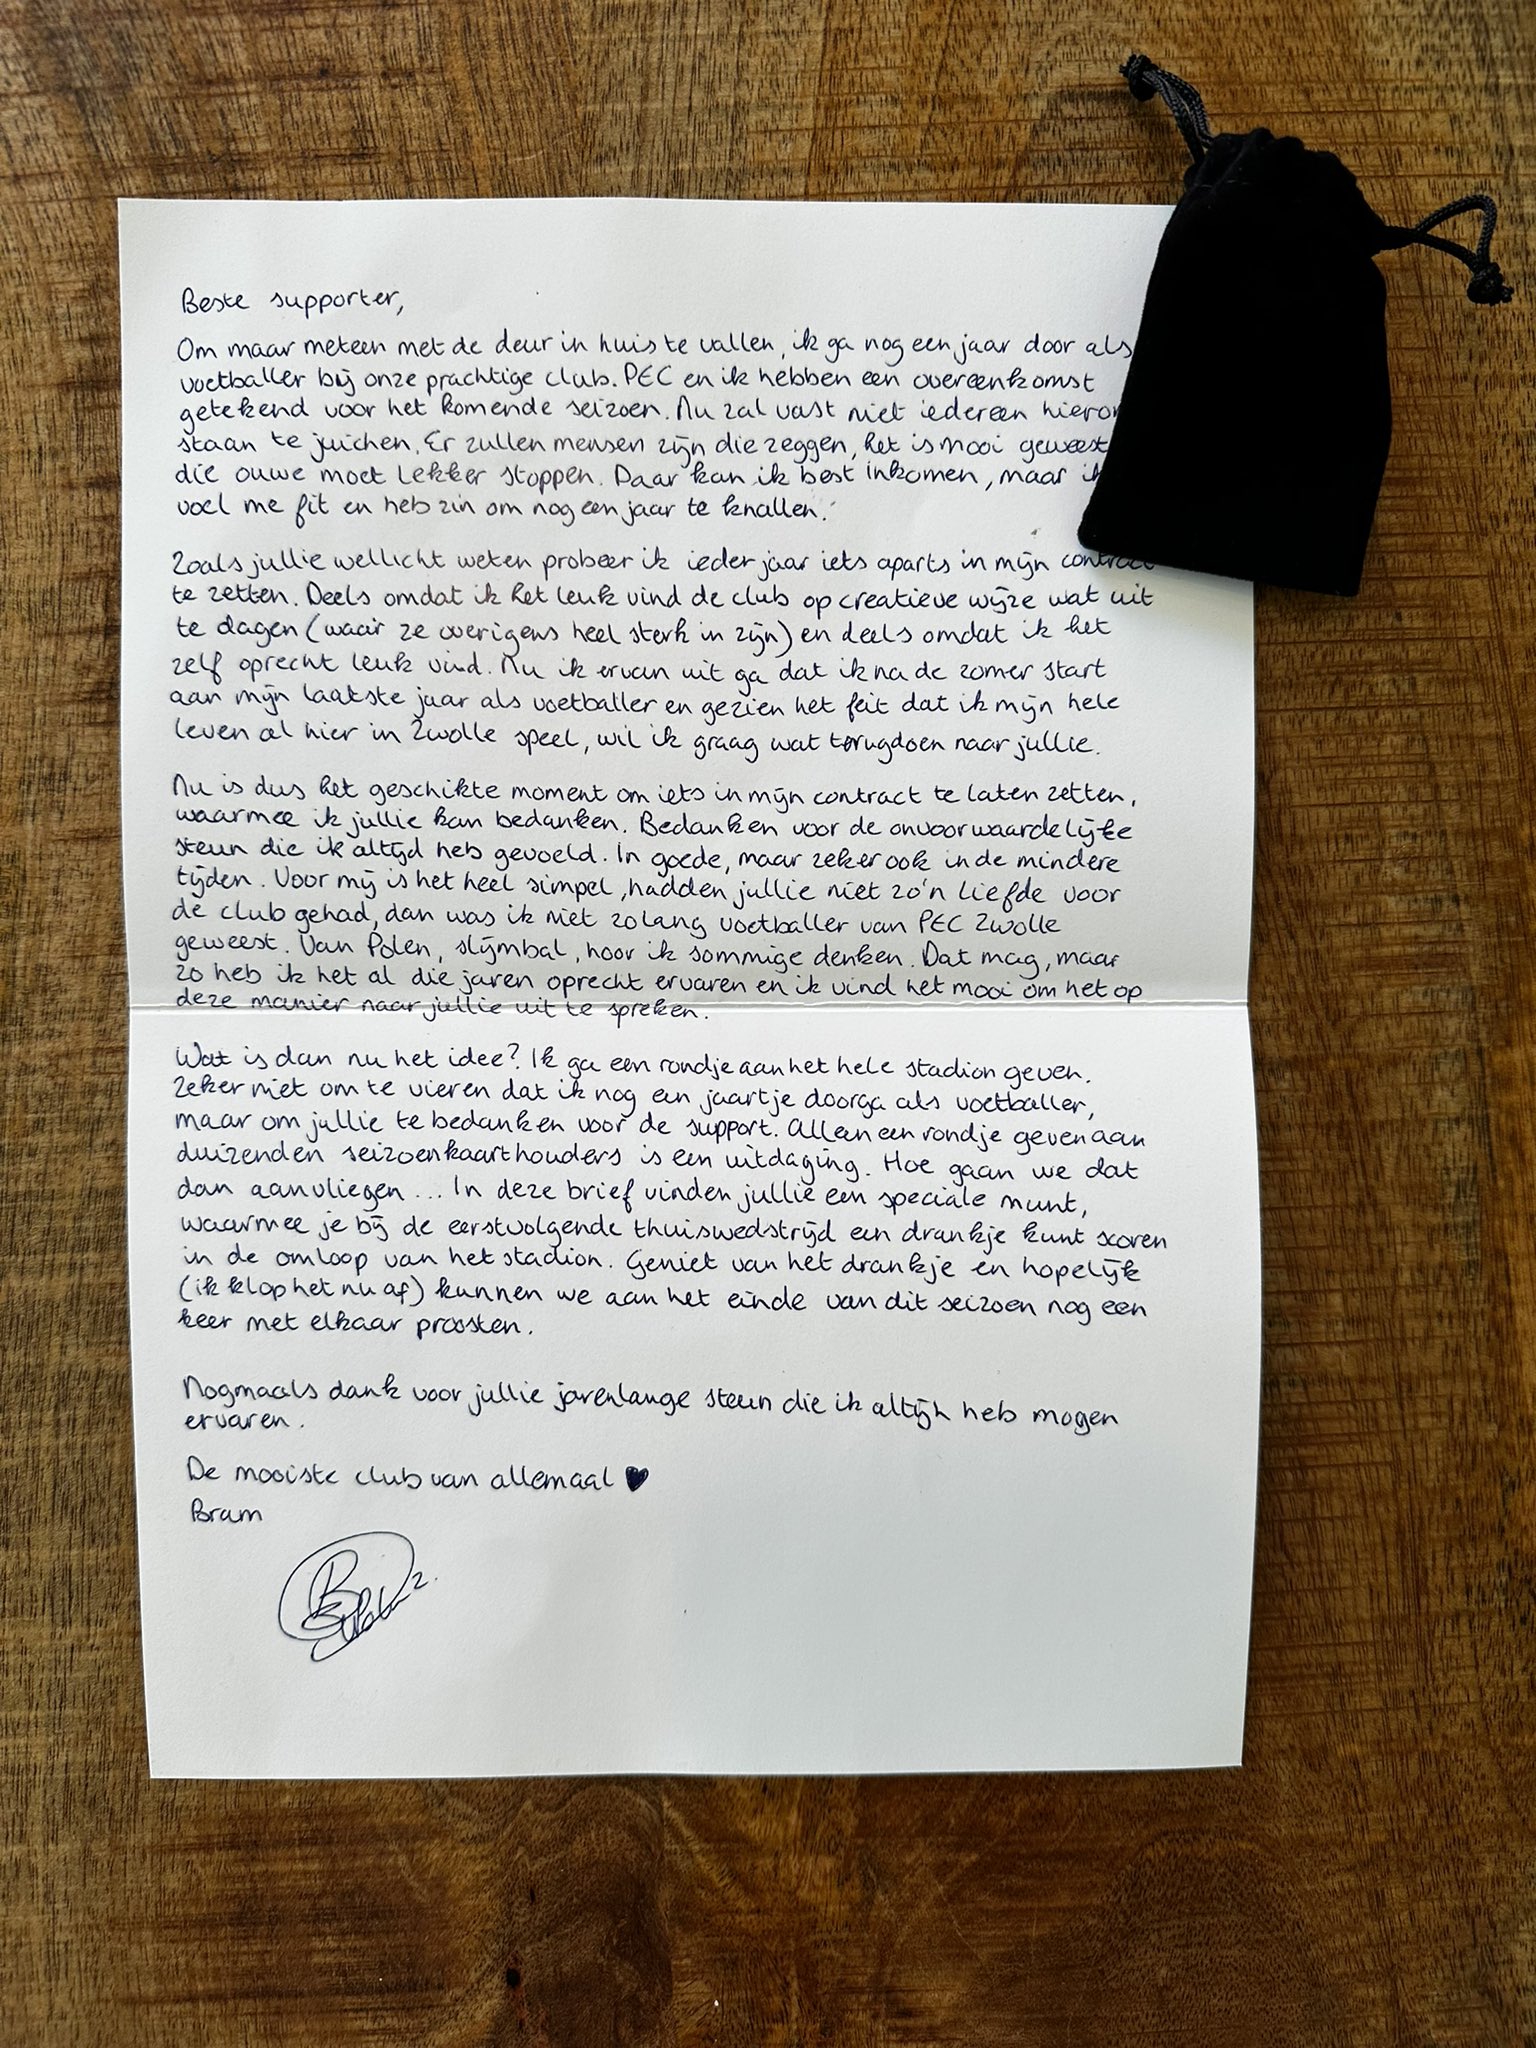 Beste supporter,
Om maar meteen met de deur in huis te vallen, ik ga nog een jaar door als
voetballer bij onze prachtige club. PEC en ik hebben een overeenkomst
getekend voor het komende seizoen. Nu zal vast niet iedereen hierom
staan te juichen. Er zullen mensen zijn die zeggen, het is mooi geweest
die ouwe moet lekker stoppen. Daar kan ik best inkomen, maar ik
voel me fit en heb zin om nog een jaar te knallen.
Zoals jullie wellicht weten probeer ik ieder jaar iets aparts in mijn contract
te zetten. Deels omdat ik het leuk vind de club op creatieve wijze wat uit
te dagen (waar ze overigens heel sterk in zijn) en deels omdat ik het
zelf oprecht leuk vind. Nu ik ervan uit ga dat ik na de zomer start
aan mijn laatste jaar als voetballer en gezien het feit dat ik mijn hele
leven al hier in Zwolle speel, wil ik graag wat terugdoen naar jullie.
Nu is dus het geschikte moment om iets in mijn contract te laten zetten,
waarmee ik jullie kan bedanken. Bedanken voor de onvoorwaardelijke
steun die ik altijd heb gevoeld. In goede, maar zeker ook in de mindere
tijden. Voor mij is het heel simpel, hadden jullie niet zo'n liefde voor
de club gehad, dan was ik niet zolang voetballer van PEC Zwolle
geweest. Van Polen, slijmbal, hoor ik sommige denken. Dat mag, maar
zo heb ik het al die jaren oprecht ervaren en ik vind het mooi om het op
deze manier naar jullie uit te spreken.
Wat is dan nu het idee? Ik ga een rondje aan het hele stadion geven.
Zeker niet om te vieren dat ik nog een jaartje doorga als voetballer,
maar om jullie te bedanken voor de support. Alleen een rondje geven aan
duizenden seizoenkaarthouders is een uitdaging. Hoe gaan we dat
dan aanvliegen... In deze brief vinden jullie een speciale munt,
waarmee je bij de eerstvolgende thuiswedstrijd een drankje kunt scoren
in de omloop van het stadion. Geniet van het drankje en hopelijk
(ik klop het nu af) kunnen we aan het einde van dit seizoen nog een
keer met elkaar proosten.
Nogmaals dank voor jullie jarenlange steun die ik altijh heb mogen
ervaren.
De mooiste club van allemaal ♥
Bram